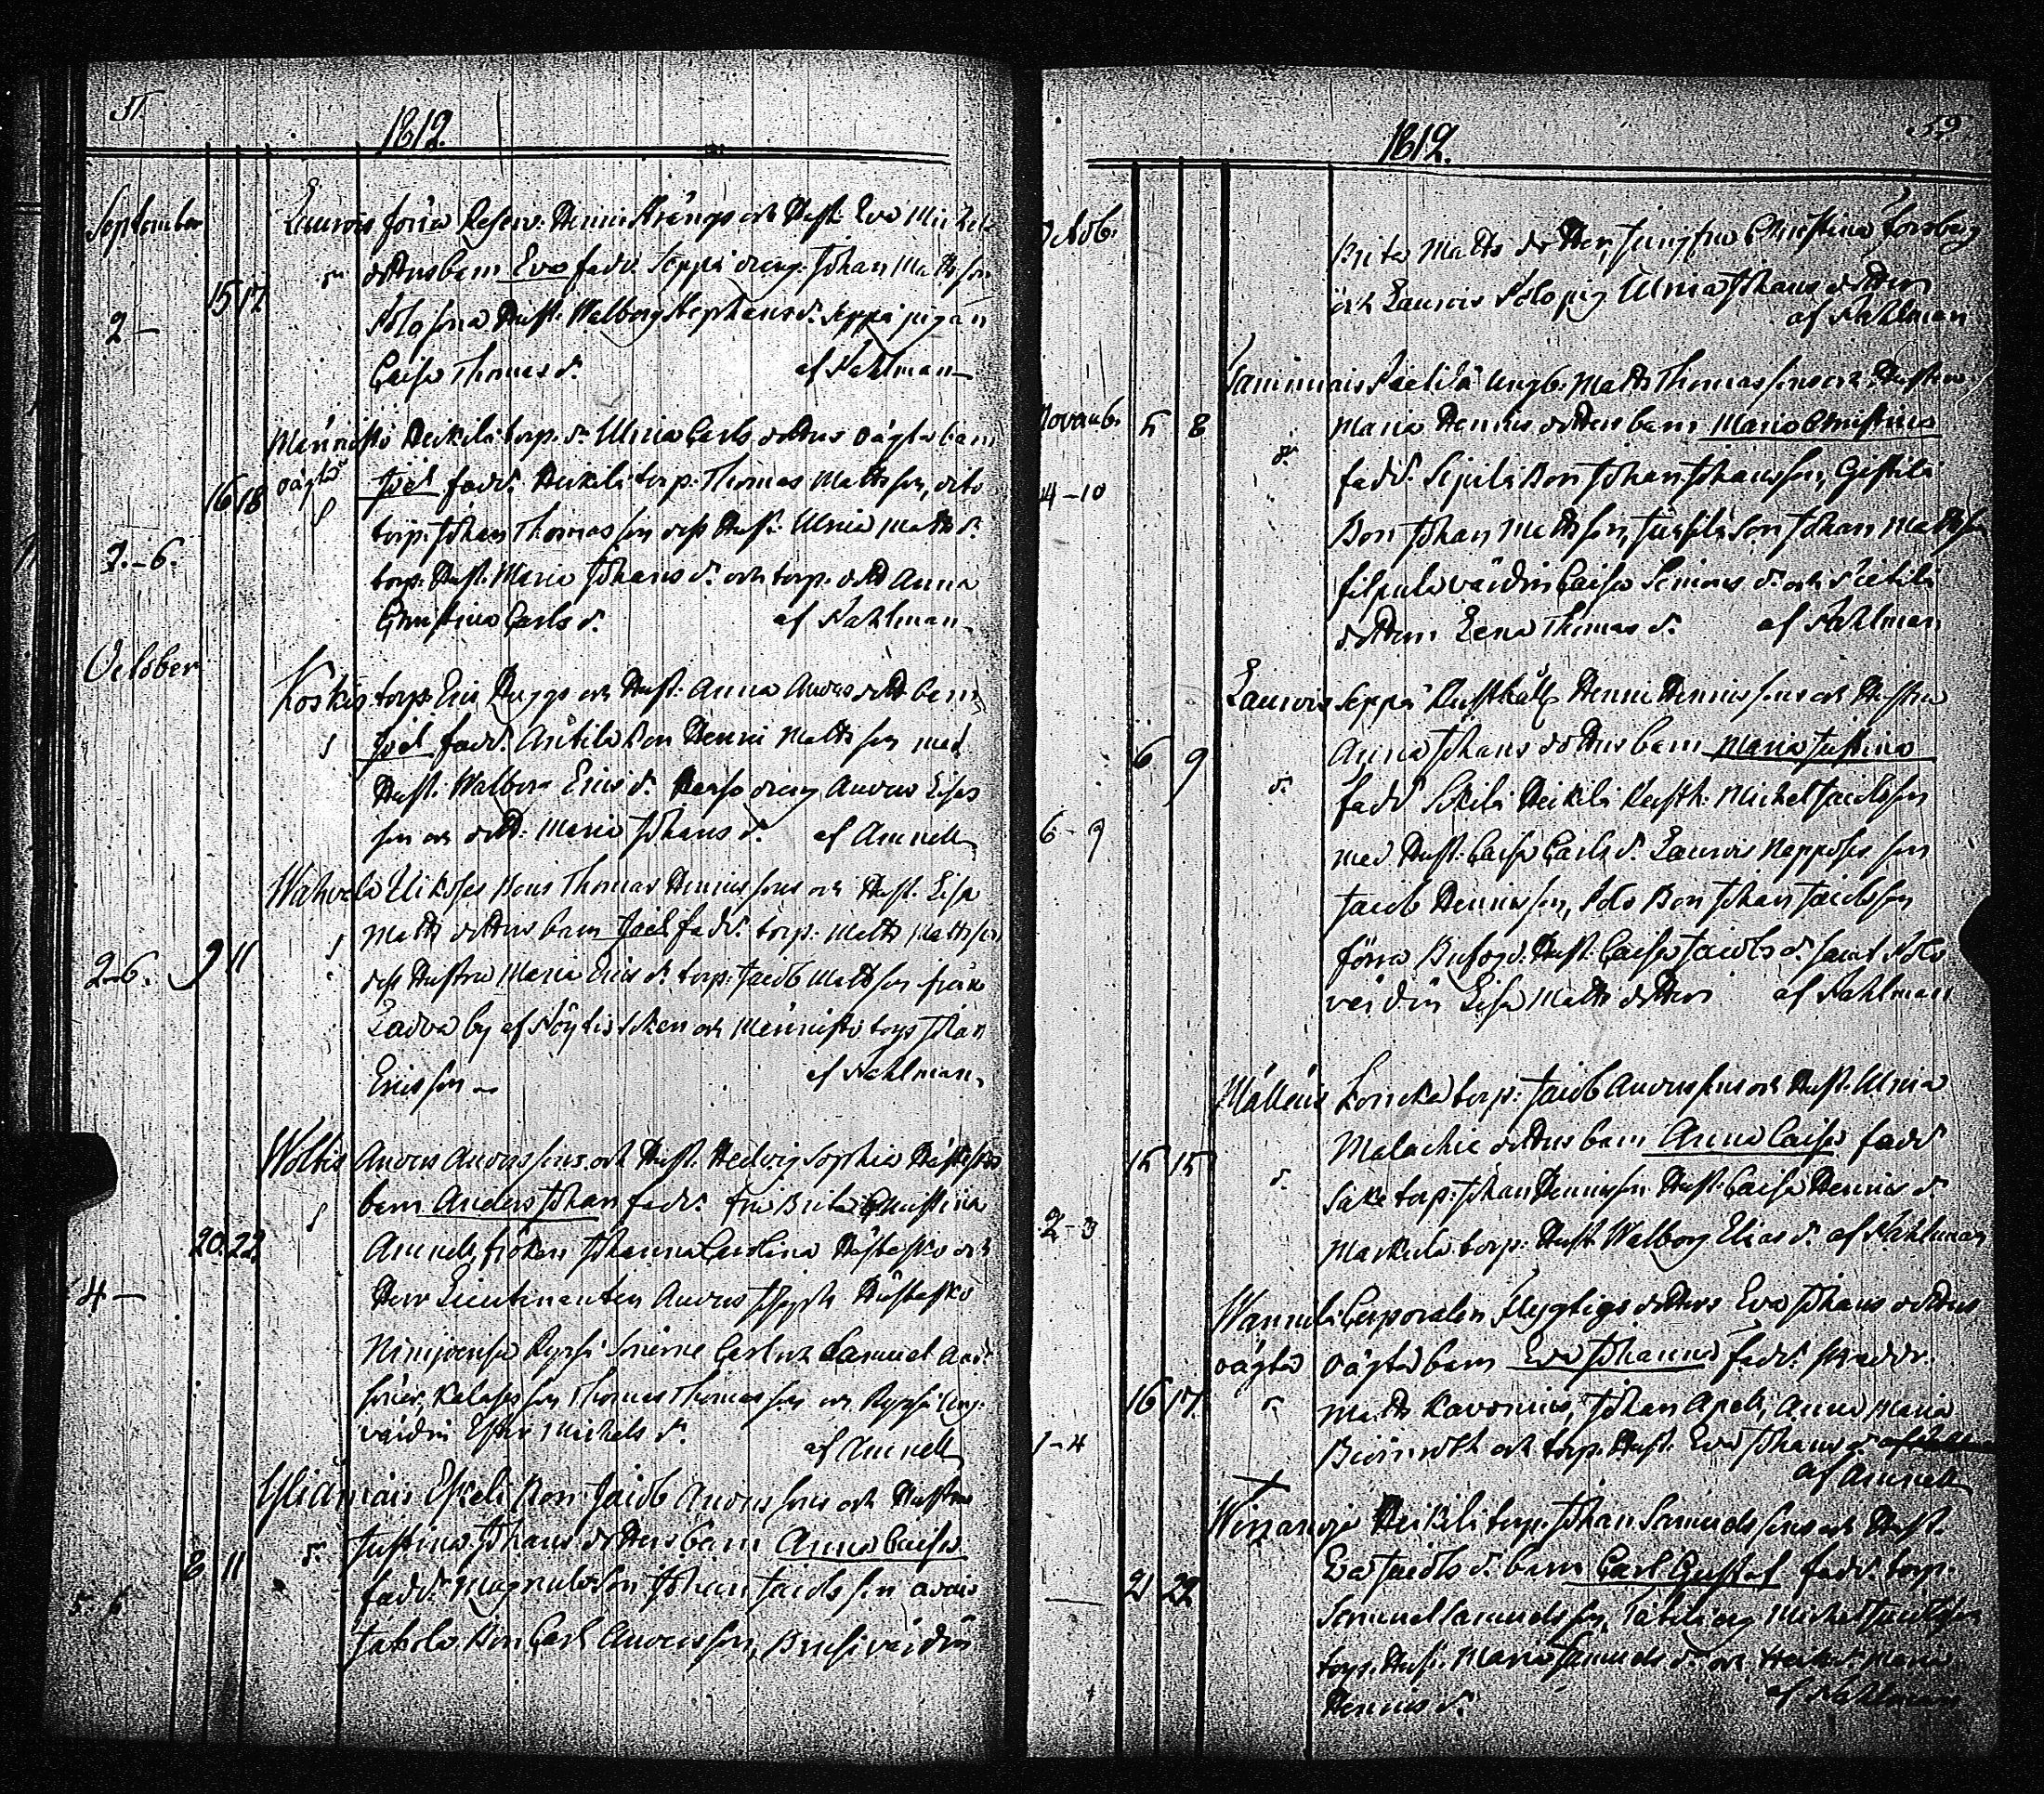 51.
1812.
September
Laurois förra Reserv. Henric Srängs och Hust. Eva Michels
dotters barn Eva fadd. Seppä dräng. Johan Matts son
2 — 15 17 Polo förra Hust. Walborg Stephans d. Seppä pigan
Caisa Thomas d. af Kahlman
Männistö Heikilä torp. d. Ulrica Carls dotters oägta barn
oägta
16 18 Joel fadd. Heikilä torp. Thomas Matts son, dito
torp. Johan Thomas son dess Hust. Ulrica Matts d.
2.-6. torp. Hust. Maria Johans d. och torp. dott Anna
Christina Carls d. af Kahlman
October
Koskis torp. Eric Ruggs och Hust. Anna Anders dott barn
Joel fadd. Antila Bon Henric Matts son med
Hust. Walborg Erics d. dräng Anders
son och dott. Maria Johans d. af Amnell
Wahvala Uikoses Bons Thomas Henrics sons och Hust. Lisa
Matts dotters barn Joel fadd. torp. Matts Matts son
2-6. 9 11 dess Hustru Maria Erics d. torp. Jacob Matts son från
Ladva by af Pöytis Soken och Männistö torp Johan
Erics son af Kahlman
Woltis Anders Anders sons och Hust. Hedvig Sophia Hästesko
barn Anders Johan fadd. fru Brita Christina
20 22 Amnell, fröken Johanna Carolina Hästesko och
4 — Herr Lieutnanten Anders Joseph Hästesko
Ninijoensu Rypsä Sönerne Carl och Samuel Anders
söner, Kalasos son Thomas Thomas son och Rypsä ung.
värdin Esther Michels d. af Amnell
Yliänäis Eskeli Bon Jacob Anders sons och Hustru
Justina Johans dotters barn Anna Caisa
8 11 fadd. Magnula Son Johan Jacobs son
5. 6 Jakola Bon Carl Anders son, värdin
1812.
59.
Octob.
Brita Matts dotter, Jungfru Christina Forsberg
och Laurois Polo pig Ulrica Johans dotter
af Kahlman
Tammiais Pietilä ungb. Matts Thomas sons och Hustru
Novemb. 5 8 Maria Henrics dotters barn Maria Christina
4-10 fadd. Sipilä Bon Johan Johansson, Gestilä
Bon Johan Matts son, Jussila son Johan Matts son
Filpula värdin Caisa Simons d. och Pietilä
dottern Lena Thomas d. af Kahlman
Laurois Seppä Rusthåll. Henric Henrics sons och Hustru
6 9 Anna Johans dotters barn Maria Justina
fadd Sikilä Heikilä Rusth. Michel Jacobs son
6 - 9 med Hust. Caisa Carls d. Laurois Nepposis son
Jacob Henrics son, Polo Bon Johan Jacobs son
förra Hust. Caisa Jacobs d. samt Polo
värdin Lisa Matts dotter af Kahlman
Mälläis Koncka torp. Jacob Anders sons och Hust. Ulrica
15 15 Malachie dotters barn Anna Caisa fadd
Sake torp. Johan Henrics son Hust. Caisa Henrics d.
2-3 Markula torp. Hust. Walborg Elias d. af Kahlman
Wannila Corporalen Flygtigs dotters Eva Johans dotters
oägta oägta barn Eva Johanna fadd.
16 17 Matts Kavonius, Johan Apell, Anna Maria
1-4 Biörnroth och torp. Hust. Eva Johans d.
af Amnell
Wirzanoja Heikilä torp. Johan Samuels sons och Hust.
21 22 Eva Jacobs d. barn Carl Gustaf fadd. torp.
— Samuel Samuels son, Michel Jacobs son
torp. Hust. Maria Samuels d. och Maria
Henrics d. af Kahlman